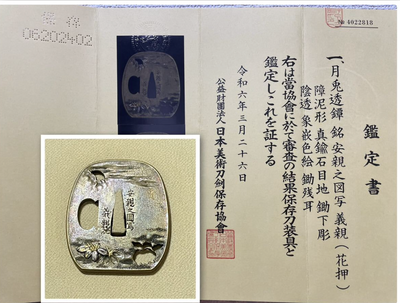 保存
06202402
№ 4022818
鑑定書
一、月兎透鐔 銘 安親之図写 義親（花押）
障泥形 真鍮石目地 鋤下彫
陰透 象嵌色絵 鋤残耳
右は當協會に於て審査の結果保存刀装具と
鑑定しこれを証する
令和六年三月二十六日
公益財團法人日本美術刀劍保存協會
安親之図写
義親